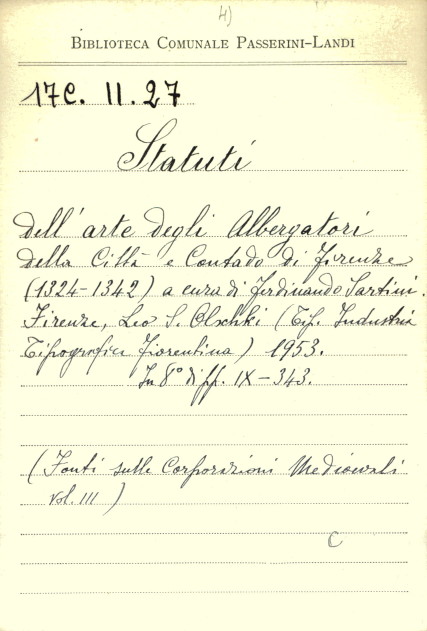 4)
BIBLIOTECA COMUNALE PASSERINI-LANDI
17C. II. 27
Statuti
dell'arte degli Albergatori
della Città e Contado di Firenze
(1324-1342) a cura di Ferdinando Sartini.
Firenze, Leo S. Olschki (Tip. Industria
Tipografica Fiorentina) 1953.
In 8° di pp. IX-343.
(Fonti sulle Corporazioni Medioevali
vol. III)
C